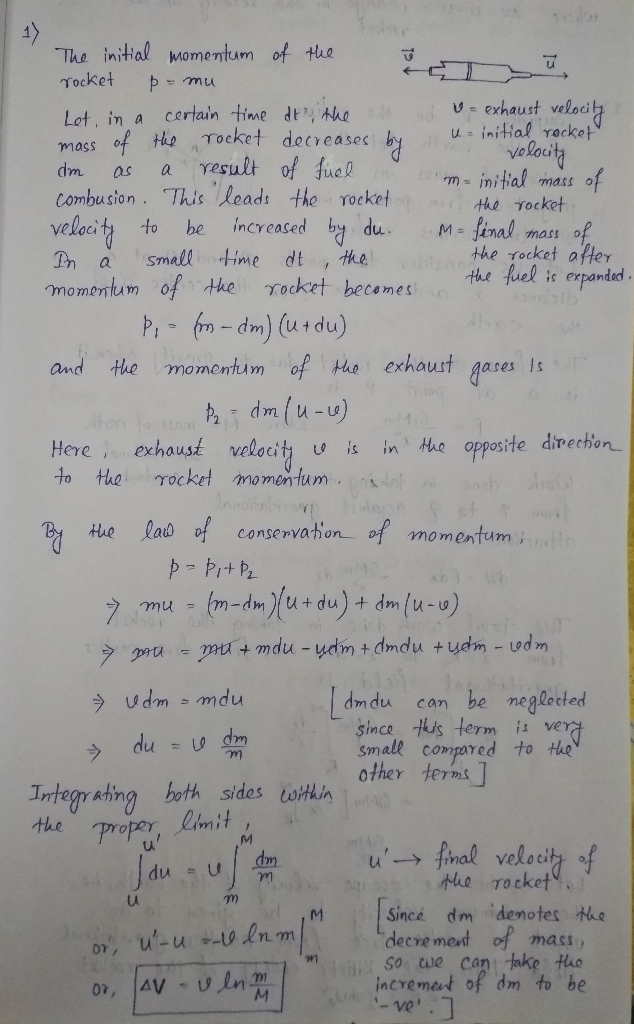 1)
The initial momentum of the
rocket p = mu
Let, in a certain time dt, the
mass of the rocket decreases by
dm as a result of fuel
combusion. This leads the rocket
velocity to be increased by du.
In a small time dt, the
momentum of the rocket becomes
v⃗ u⃗
v = exhaust velocity
u = initial rocket
velocity
m = initial mass of
the rocket
M = final mass of
the rocket after
the fuel is expanded.
P₁ = (m - dm) (u + du)
and the momentum of the exhaust gases is
p₂ = dm (u - v)
Here, exhaust velocity v is in the opposite direction
to the rocket momentum.
By the law of conservation of momentum,
p = p₁ + p₂
⇒ mu = (m-dm)(u+du) + dm(u-v)
⇒ mu = mu + mdu - udm + dmdu + udm - vdm
⇒ vdm = mdu
⇒ du = v dm/m
[dmdu can be neglected
since this term is very
small compared to the
other terms]
Integrating both sides within
the proper limit,
∫ᵤᵘ' du = v ∫ₘᴹ dm/m
u' → final velocity of
the rocket.
or, u'-u = -v ln m |ₘᴹ
or, ΔV = v ln m/M
[Since dm denotes the
decrement of mass,
so we can take the
increment of dm to be
'-ve'.]